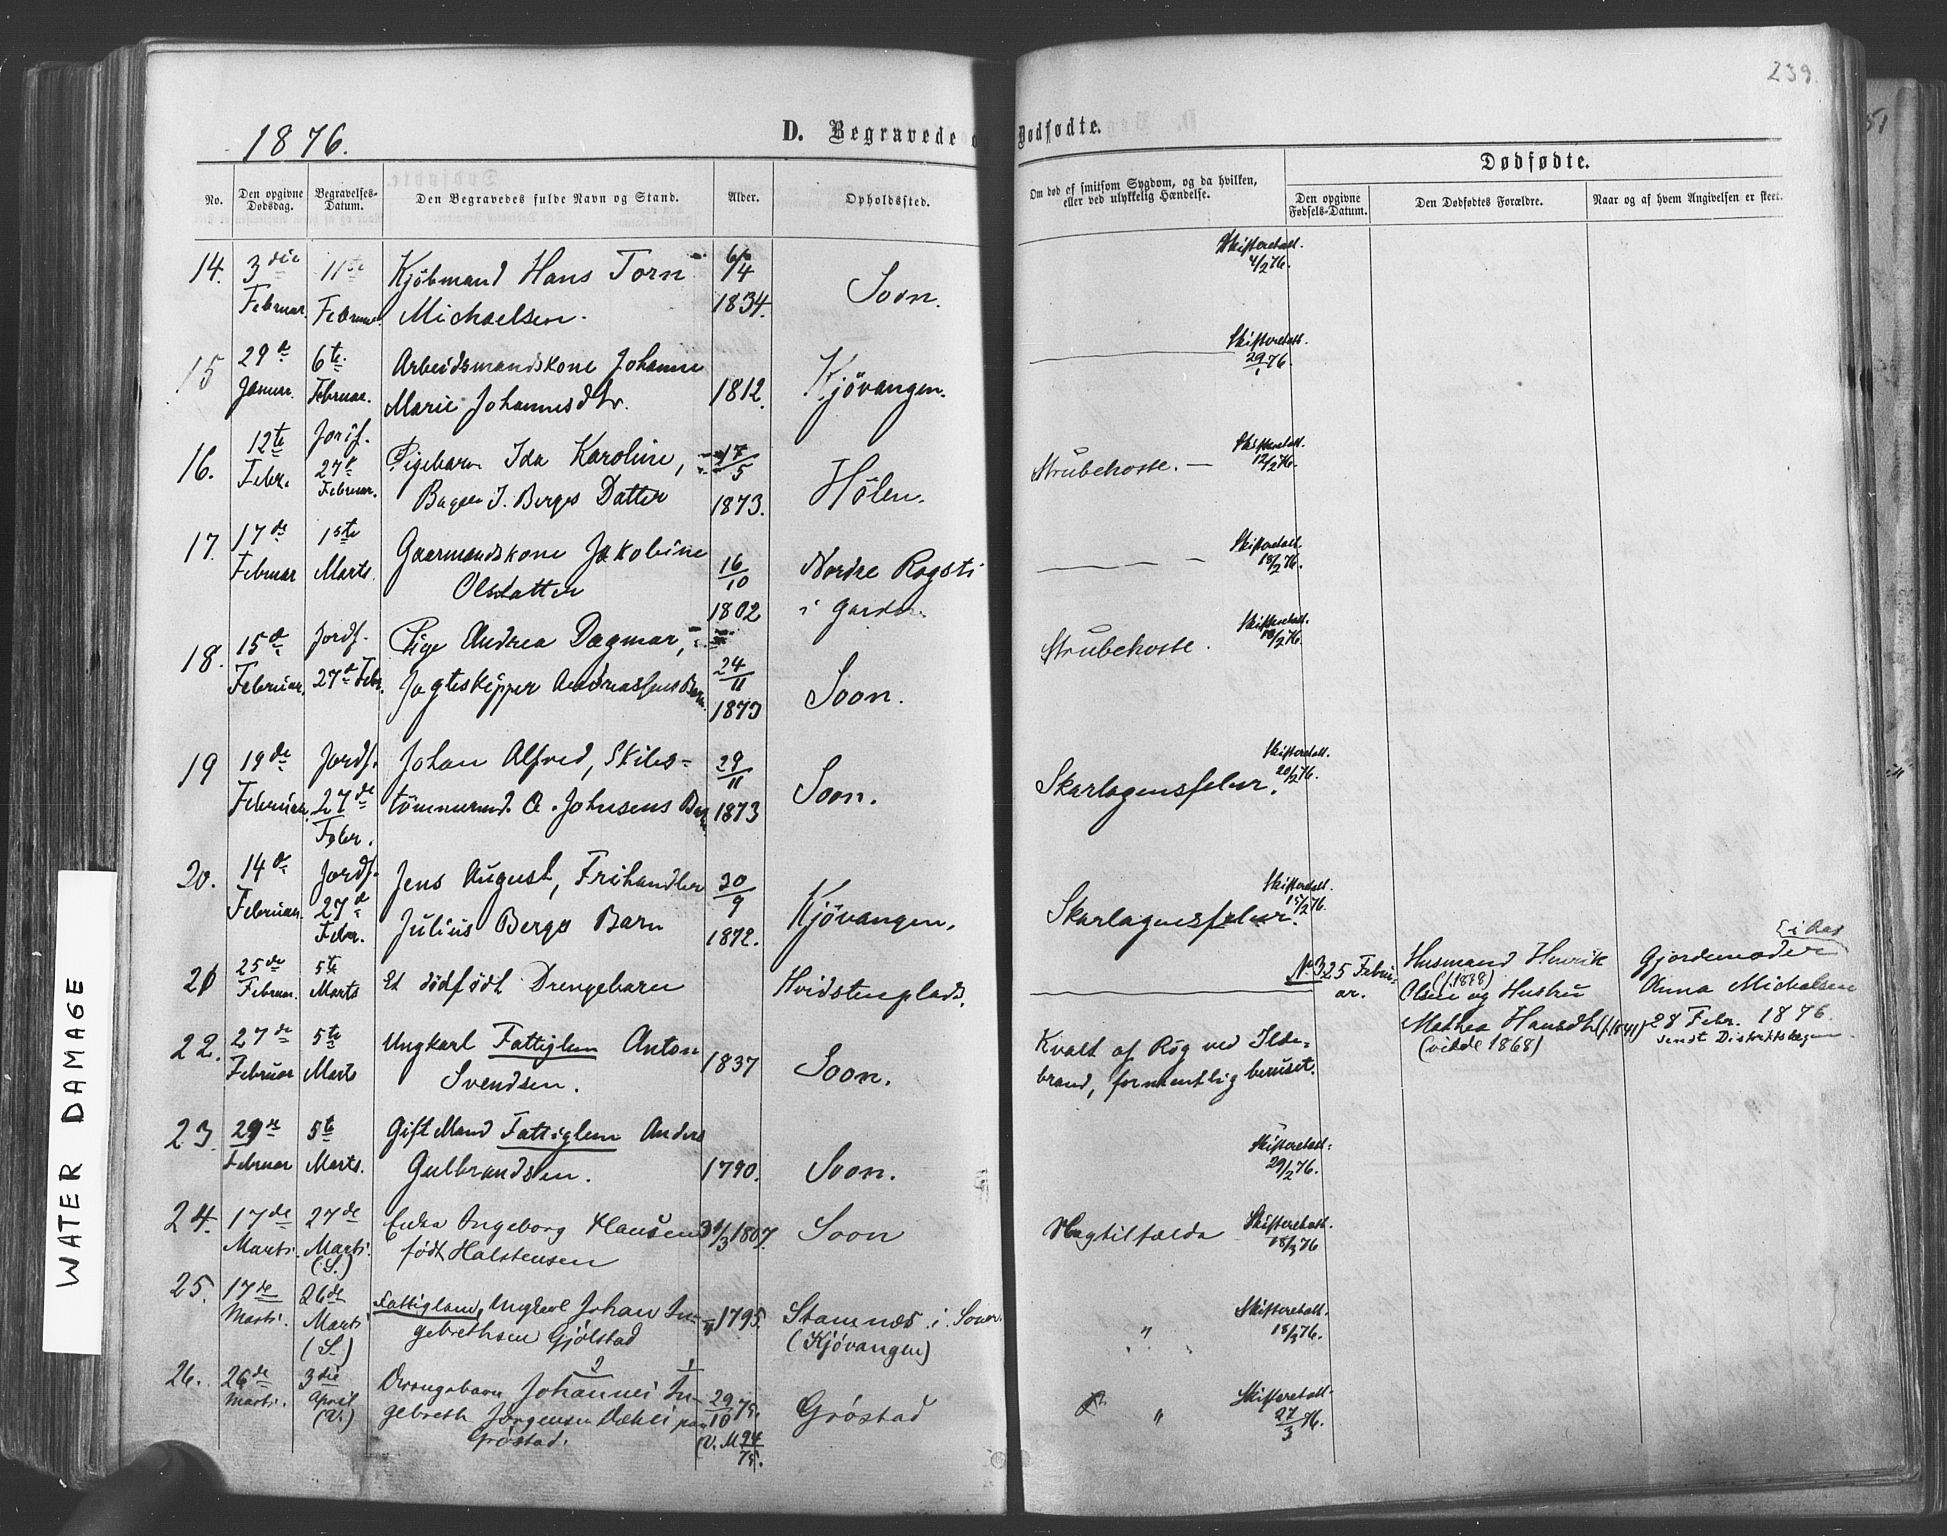 239.
1876.
D. Begravede o
Dødfødte.
No.
Den opgivne Dødsdag.
Begravelses-Datum.
Den Begravedes fulde Navn og Stand.
Alder.
Opholdssted.
Om død af smitsom Sygdom, og da hvilken,
eller ved ulykkelig Hændelse.
Dødfødte.
Den opgivne Fødsels-Datum.
Den Dødfødtes Forældre.
Naar og af hvem Angivelsen er skeet.
14. 3die 11te Kjøbmand Hans Torn 6/4 Soon. Skifteretsatt. 4/2 76.
Februar. Februar Michaelsen. 1834.
15 29de 6te Arbeidsmandskone Johanne Kjøvangen. Skifteretsatt. 29/1 76.
Januar. Februar. Marie Johannesdtr. 1812.
16. 12te Jordf. Pigebarn Ida Karoline, 17/5 Hølen. Strubehoste. — Skifteretsatt. 12/2 76.
Febr. 27de Februar. Bager J. Bergs Datter 1873.
17. 17de 1ste Gaarmandskone Jakobine 16/10 Nordre Rogsti Skifteretsatt. 18/2 76.
Februar Marts. Olsdatter 1802 i Garder.
18. 15de Jordf. Pige Andrea Dagmar, 24/11 Soon. Strubehoste. Skifteretsatt. 18/2 76.
Februar. 27de Febr. Jagtskipper Andreassens Barn. 1873
19 19de Jordf. Johan Alfred, Skibs- 29/11 Soon. Skarlagensfeber. Skifteretsatt. 20/2 76.
Februar. 27de Febr. tømmermd. O. Johnsens Barn 1873
20. 14de Jordf. Jens August, Frihandler 30/9 Kjøvangen. Skarlagensfeber. Skifteretsatt. 15/2 76.
Februar. 27de Febr. Julius Bergs Barn 1872.
21 25de 5te Et dødfødt Drengebarn Hvidstenplads.
Februar. Marts
No 3 25 Februar.
Husmand Henrik
Olsen (f. 1838) og Hustru
Mathea Hansdtr (f. 1841)
(viede 1868)
Gjordemoder i Aas
Anna Michelsen
28 Febr. 1876.
sendt Distriktslægen
22. 27de 5te Ungkarl Fattiglem Anton 1837 Soon. Kvalt af Røg ved Ilde-
Februar Marts Svendsen. brand, formentlig beruset.
23. 29de 5te Gift Mand Fattiglem Anders Soon. Skifteretsatt: 29/2 76.
Februar Marts. Gulbrandsen. 1790.
24. 17de 27de Enke Ingeborg Hansen 31/3 1807. Soon Slagtilfælde Skifteretsatt. 18/3 76
Marts. Marts. (S.) født Halstensen
25. 17de 26de Fattiglem, Ungkarl Johan In- 1795. Stamnes i Soner " Skifteretsatt. 18/3 76.
Marts. Marts (S.) gebrethsen Gjølstad (Kjøvangen)
26. 26de 3die Drengebarn Johannes In- 29/10 75. Grøstad " Skifteretsatt. 27/3 76.
Marts. April (V.) gebreth Jørgensen Dæhli paa (V. M 24/75.
Grøstad.
WATER DAMAGE
51